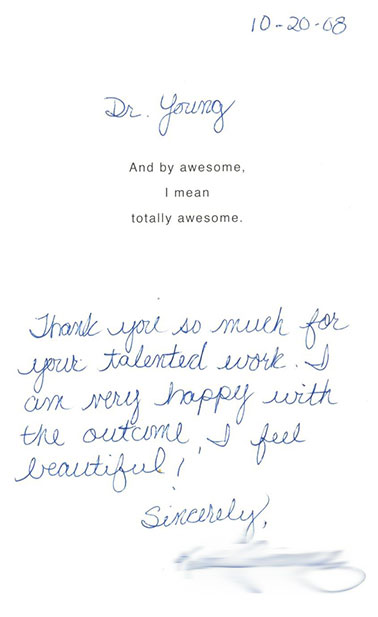 10-20-08
Dr. Young
And by awesome,
I mean
totally awesome.
Thank you so much for
your talented work. I
am very happy with
the outcome, I feel
beautiful!
Sincerely,